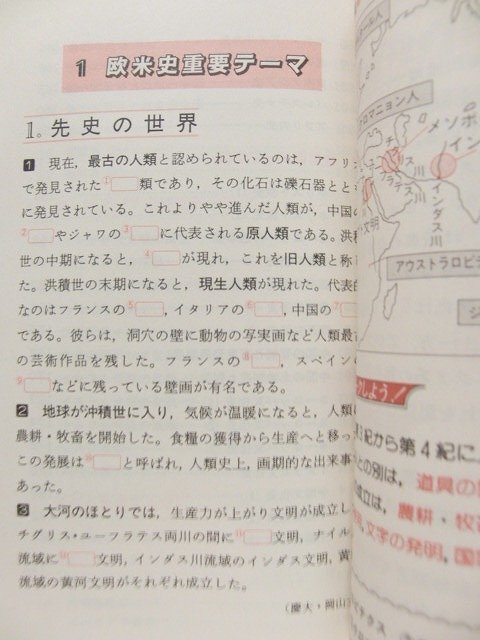 1 欧米史重要テーマ
1. 先史の世界
1 現在，最古の人類と認められているのは，アフリ
で発見された1 類であり，その化石は礫石器とと
に発見されている。これよりやや進んだ人類が，中国の
2 やジャワの3 に代表される原人類である。洪
世の中期になると，4 が現れ，これを旧人類と称
た。洪積世の末期になると，現生人類が現れた。代表
なのはフランスの5 ，イタリアの6 ，中国の7
である。彼らは，洞穴の壁に動物の写実画など人類最
の芸術作品を残した。フランスの8 ，スペイン
9 などに残っている壁画が有名である。
2 地球が沖積世に入り，気候が温暖になると，人類
農耕・牧畜を開始した。食糧の獲得から生産へと移っ
この発展は10 と呼ばれ，人類史上，画期的な出来事
あった。
3 大河のほとりでは，生産力が上がり文明が成立し
チグリス・ユーフラテス両川の間に11 文明，ナイル
流域に12 文明，インダス川流域のインダス文明，黄
流域の黄河文明がそれぞれ成立した。
（慶大・岡山
ロマニョン人
メソポ
イン
チグリス川
インダス川
文明
アウストラロピテ
しよう！
紀から第4紀に
との別は，道具の
成立は，農耕・牧
文字の発明，国